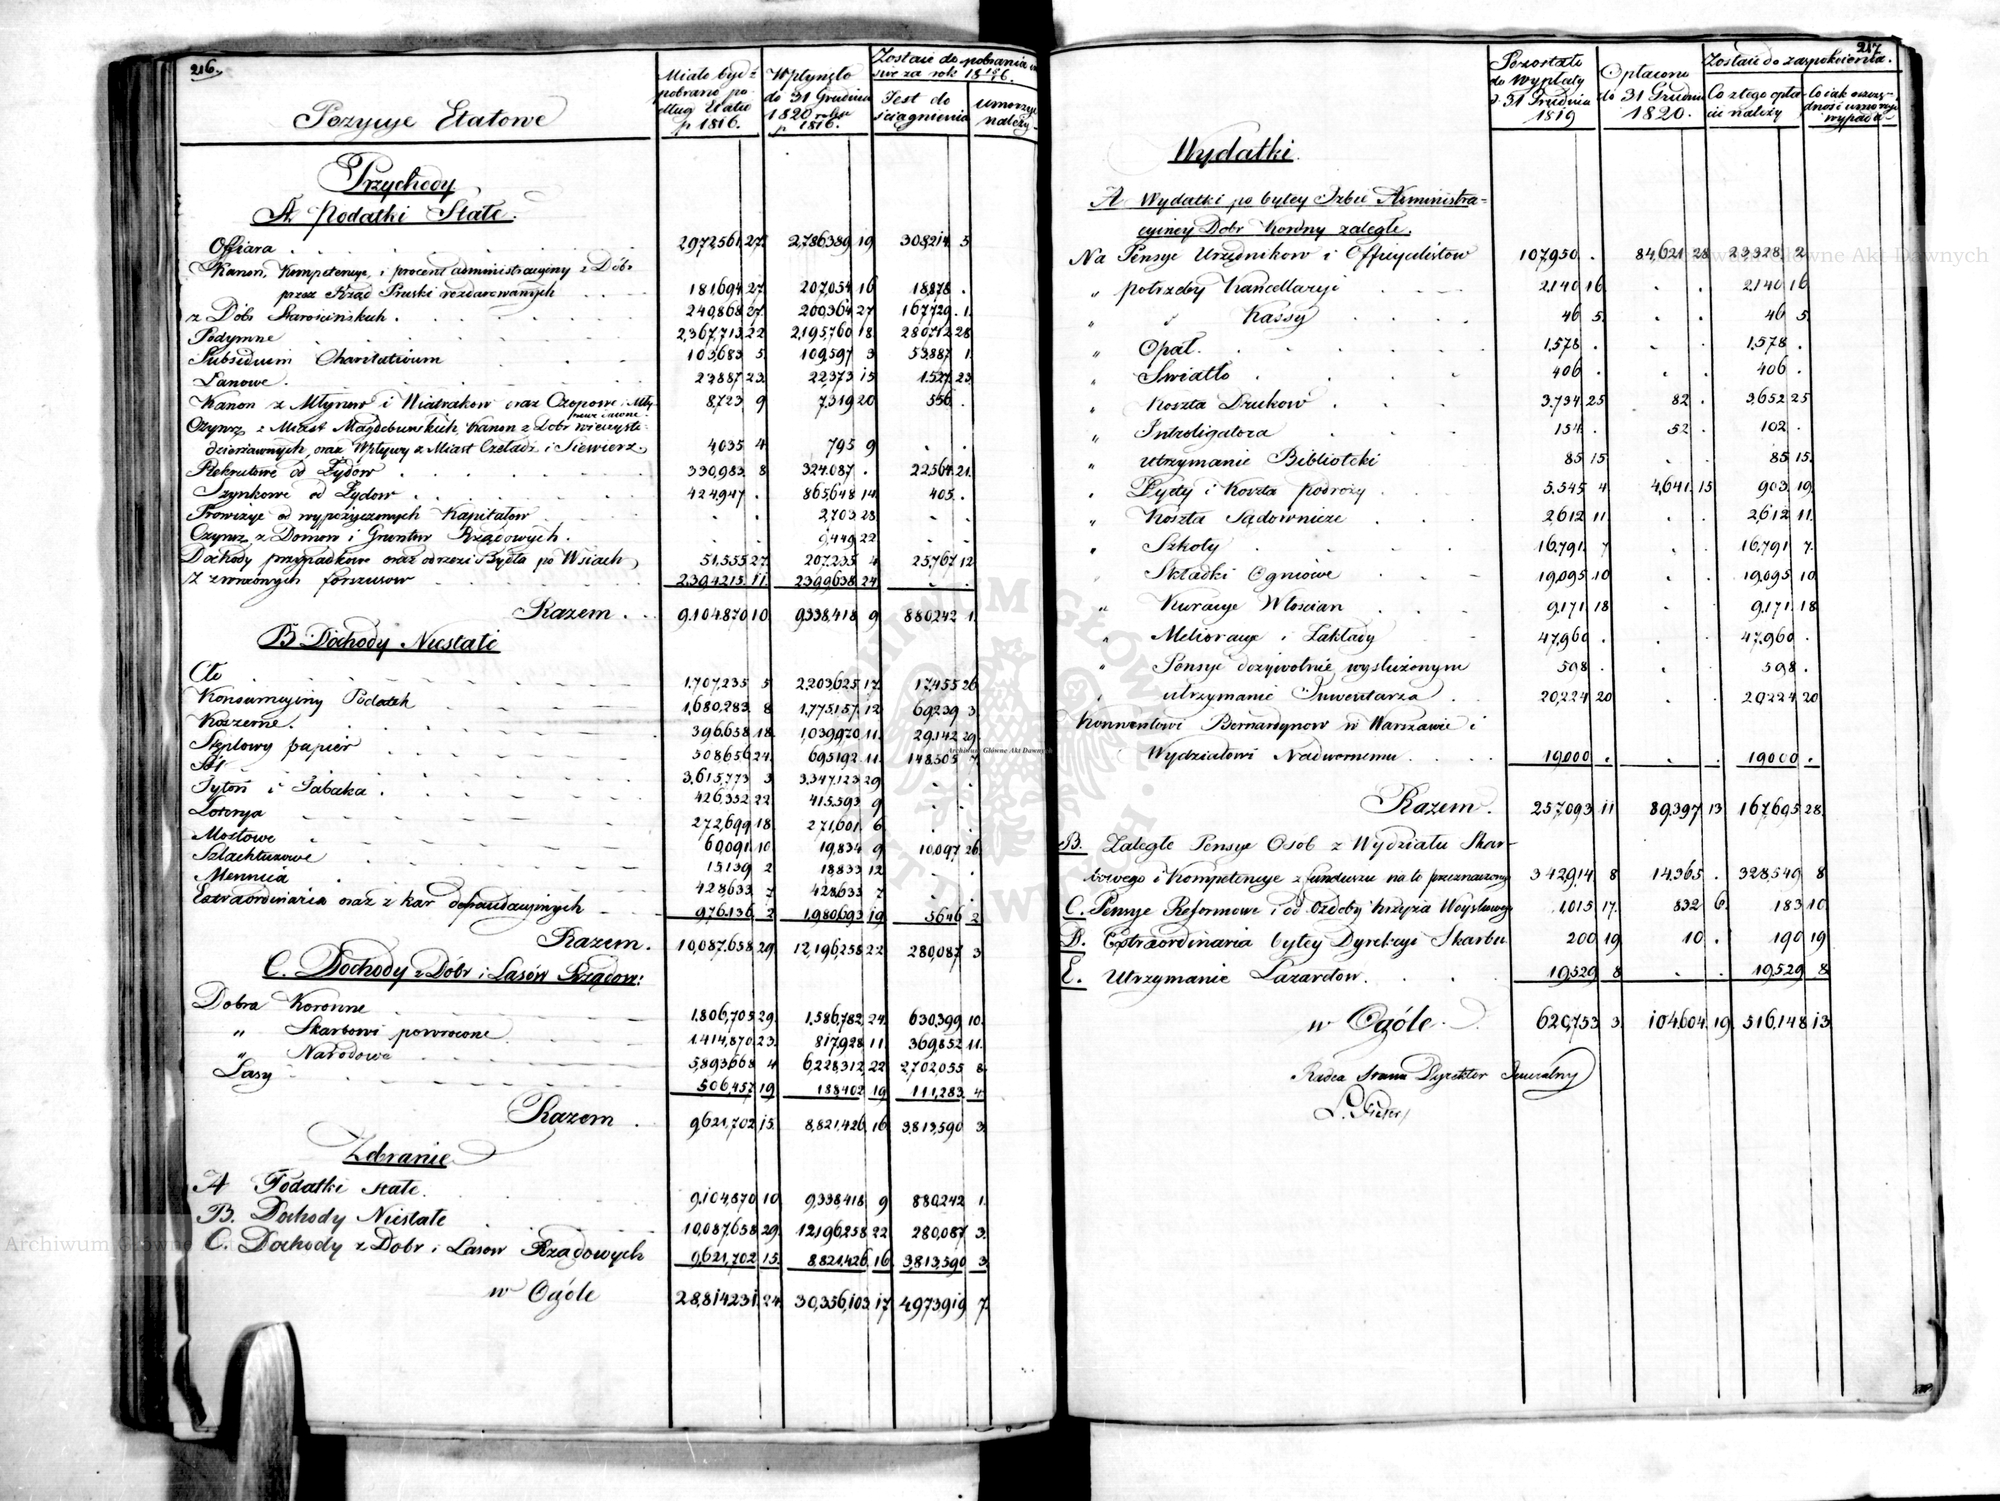 216.
Pozycye Etatowe
Miało być pobrano podług Etatu p 1816.
Wpłynęło do 31 Grudnia 1820 p 1816.
Zostaie do pobrania za rok 1816.
Jest do ściągnienia
umorzyć należy
Przychody
A. Podatki Stałe.
Offiara 2972561 27. 2,786389 19 308214 5
Kanon, Kompetencye, i procent administracyiny z Dóbr
przez Rząd Pruski rozdarowanych 181694 27. 207,054 16 18878 .
z Dóbr Starościńskich 240,868 27. 200,364 27 167729 1.
Podymne 2,367,713 22 2,195,760 18 280,712 28
Subsidium Charitativum 103,683 5. 109,597 3 53,887 1.
Łanowe 23887 23. 22,373 15 1,527 23
Kanon z Młynów i Wiatraków oraz Czopowe 8,723 9 7,319 20 556 .
Czynsz z Miast Magdeburskich, Kanon z Dobr wieczysto
dzierżawnych, oraz Wpływy z Miast Czeladź i Siewierz 4,035 4 795 9 . .
Rekrutowe od Żydów 330,983 8 324,087 . 22,564 21.
Szynkowe od Żydow 424,947 . 865,648 14 405 .
Prowizye od wypożyczonych Kapitałow . . 2,703 28 . .
Czynsz z Domow i Gruntow Rządowych. . . 9,449 22 . .
Dochody przypadkowe oraz od rzezi Bydła po Wsiach 51,555 27 207,235 4 25,767 12
Z zwróconych forszusow 2,394,215 11 2,399,638 24 . .
Razem 9,104,870 10 9,338,418 9 880,242 1.
B. Dochody Niestałe
Cło 1,707,235 5 2,203,625 17 17,455 26
Konsumcyiny Podatek 1,680,283 8 1,775,157 12 69,239 3
Koszerne 396,658 18. 1,039,970 11. 29,142 29.
Stęplowy papier 508,656 24. 695,192 11. 148,505 7.
Sól 3,615,773 3 3,347,123 29 . .
Tytoń i Tabaka 426,352 22 415,593 9 . .
Loterya 272,699 18. 271,601 6 . .
Mostowe 60,091 10 19,834 9 10,097 26
Szlachtuzowe 15,139 2 18,833 12 . .
Mennica 428,633 7 428,633 7 . .
Extraordinaria oraz z kar defraudacyinych 976,136 2 1,980,693 19 5,646 2
Razem. 10,087,658 29. 12,196,258 22 280,087 3
C. Dochody z Dóbr i Lasów Rządow:
Dobra Koronne 1,806,705 29. 1,586,782 24. 630,399 10.
" Skarbowi powrocone 1,414,870 23. 817,928 11. 369,852 11.
" Narodowe 5,893,668 4 6,228,312 22 2,702,055 8
Lasy 506,457 19 188,402 19 111,283 4
Razem 9,621,702 15. 8,821,426 16 3,813,590 3
Zebranie
A Podatki stałe. 9,104,870 10. 9,338,418 9 880,242 1.
B. Dochody Niestałe 10,087,658 29. 12,196,258 22 280,087 3
C. Dochody z Dobr i Lasow Rządowych 9,621,702 15. 8,821,426 16. 3,813,590 3
w Ogóle 28,814,231. 24. 30,356,103 17 4,973,919 7.
217
Pozostało do wypłaty d. 31 Grudnia 1819
Opłacono do 31 Grudnia 1820.
Zostaie do zaspokoienia.
Co z tego opłacić należy
Wydatki.
A Wydatki po byłey Izbie Administra=
cyiney Dobr Korony zaległe.
Na Pensye Urzędnikow i Officyalistow 107,950 . 84,621 28 23,328 2
" potrzeby Kancellaryi 2,140 16 . . 2,140 16
" " Kassy 46 5. . . 46 5.
" Opał. 1,578 . . . 1,578 .
" Swiatło 406 . . . 406 .
" Koszta Drukow 3,734 25 82 . 3,652 25
" Introligatora 154 . 52 . 102 .
" utrzymanie Biblioteki 85 15 . . 85 15.
" Dyety i Koszta podroży 5,545 4 4,641 15 903 19.
" Koszta Sądownicze 2,612 11. . . 2,612 11.
" Szkoły 16,791 7 . . 16,791 7.
" Składki Ogniowe 19,095 10 . . 19,095 10
" Kuracye Włoscian 9,171 18 . . 9,171 18
" Melioracye i Zakłady 47,960 . . . 47,960 .
" Pensye dożywotnie wysłużonym 598 . . . 598 .
" utrzymanie Inwentarza 20,224 20 . . 20,224 20
Konwentowi Bernardynow w Warszawie i
Wydziałowi Nadwornemu 19,000 . . . 19,000 .
Razem. 257,093 11 89,397 13 167,695 28.
B. Zaległe Pensye Osob z Wydziału Skar-
bowego i Kompetencye z funduszu na to przeznaczonego 342,914 8 14,365 . 328,549 8
C. Pensye Reformowe i od Ozdoby Krzyża Woyskowego 1,015 17. 832 6. 183 10
D. Extraordinaria byłey Dyrekcyi Skarbu 200 19 10 . 190 19
E. Utrzymanie Lazaretow. 19,529 8 . . 19,529 8
w Ogóle 620,753 3. 104,604 19. 516,148 13
Radca Stanu Dyrektor Jeneralny
Archiwum Główne Akt Dawnych
Archiwum Główne Akt Dawnych